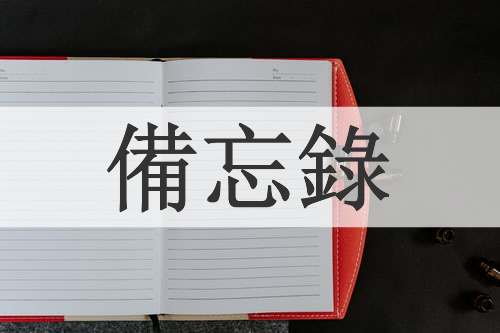 備忘錄